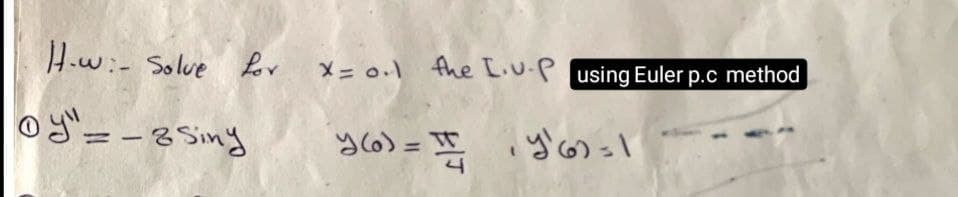 H.w:- Solve for x = 0.1 the I.V.P using Euler p.c method
① y'' = - 8 Sin y y(0) = π/4 , y'(0) = 1